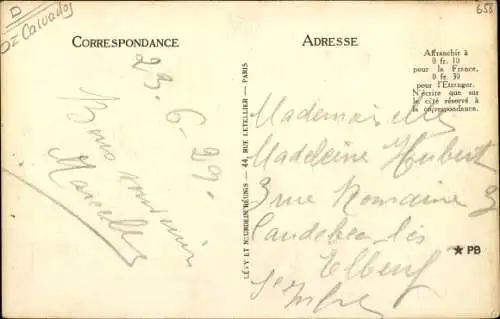 D
Oz Calvados
658
CORRESPONDANCE
ADRESSE
Affranchir à
0 fr. 10
pour la France,
0 fr. 30
pour l'Etranger.
N'écrire que sur
le côté réservé à
la correspondance.
23-6-29-
Bons souvenirs
Marcelle
LÉVY ET NEURDEIN RÉUNIS — 44, RUE LETELLIER — PARIS
Mademoiselle
Madeleine Hubert
3 rue Romaine 3
Caudebec les
Elbeuf
Sne Infre
★ PB